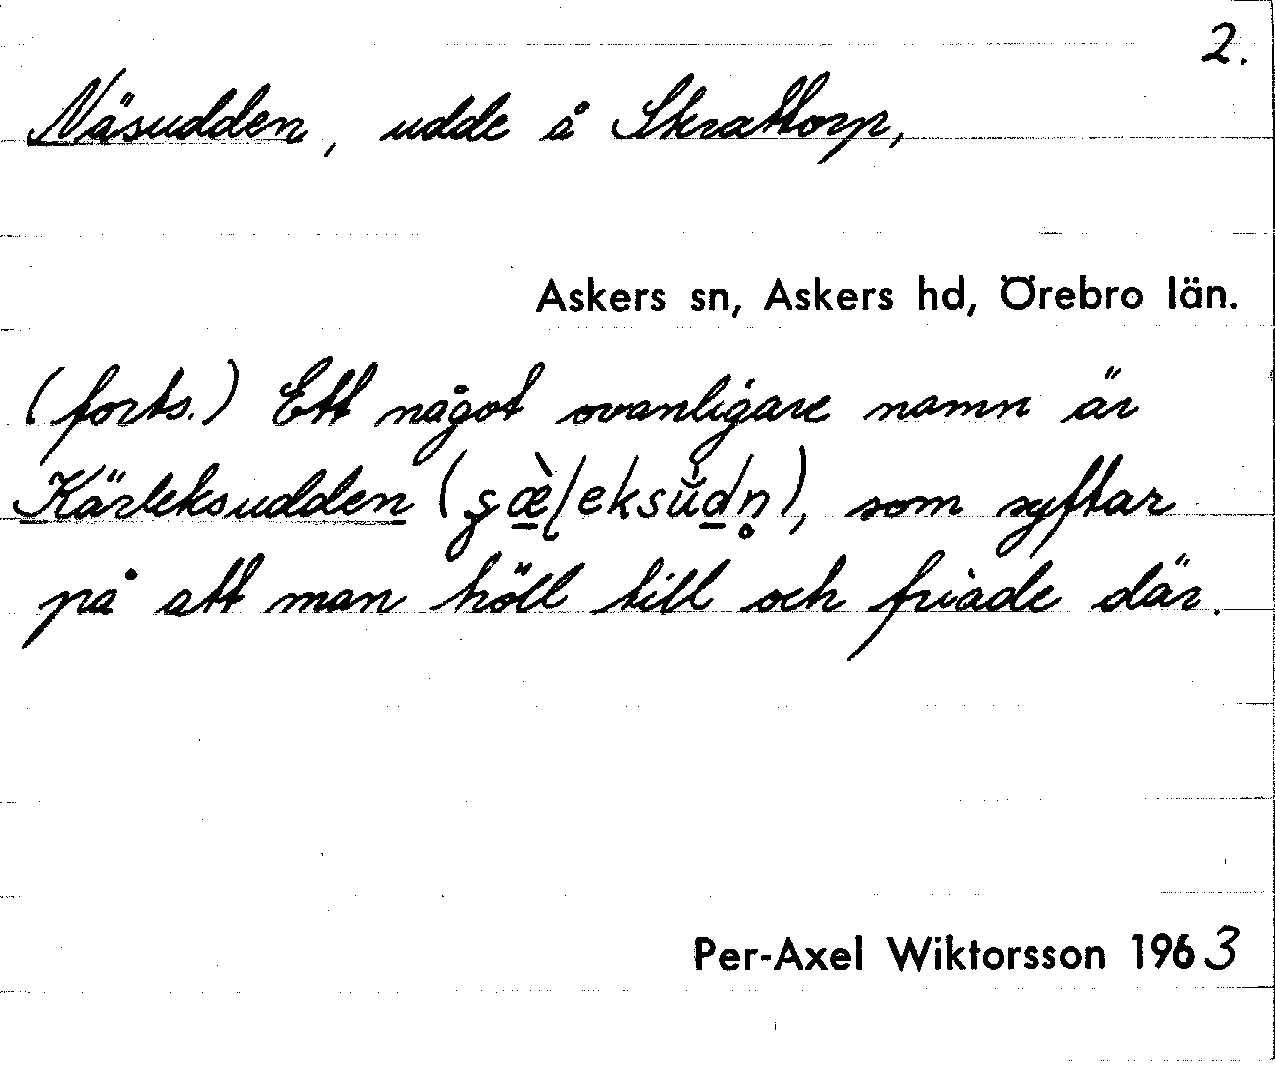 2.
Näsudden, udde å Skrattorp,
Askers sn, Askers hd, Örebro län.
(forts.) Ett något ovanligare namn är
Kärleksudden (), som syftar
på att man höll till och friade där.
Per-Axel Wiktorsson 1963